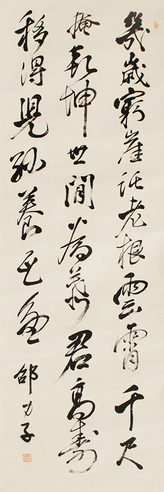 幾歲窮崖託老根雲霄千尺
掩乾坤世間為羨君高壽
移得兒孫養瓦盆 邵力子